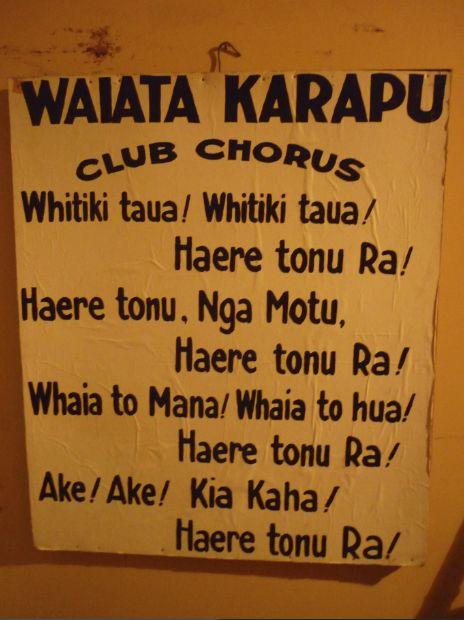 WAIATA KARAPU
CLUB CHORUS
Whitiki taua! Whitiki taua!
Haere tonu Ra!
Haere tonu, Nga Motu,
Haere tonu Ra!
Whaia to Mana! Whaia to hua!
Haere tonu Ra!
Ake! Ake! Kia Kaha!
Haere tonu Ra!